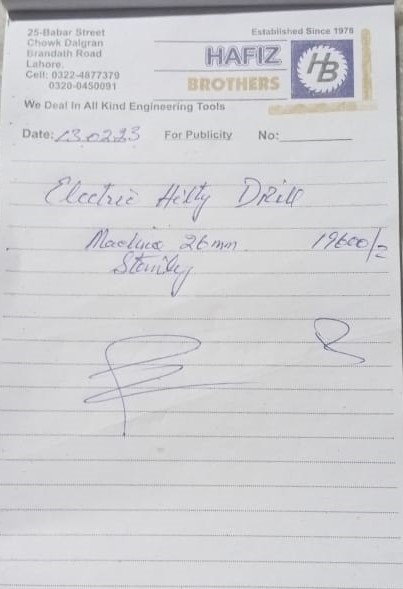 25-Babar Street
Chowk Dalgran
Brandath Road
Lahore.
Cell: 0322-4877379
0320-0450091
Established Since 1978
HAFIZ
BROTHERS
HB
We Deal In All Kind Engineering Tools
Date: 13.02.23 For Publicity No:
Electric Hilty Drill
Machine 26 mm 19600/=
Stanley